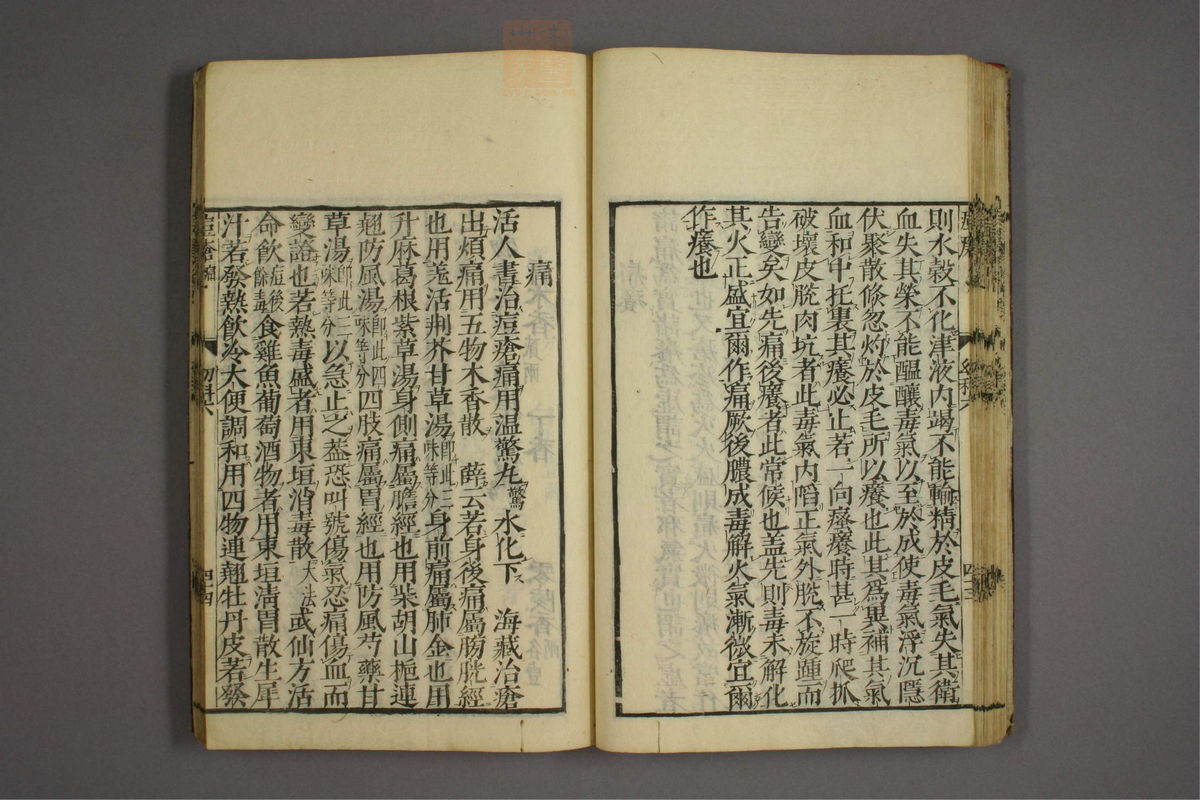 則水穀不化津液内竭不能輸精於皮毛氣失其衛
血失其榮不能醖釀毒氣以至於成使毒氣浮沉隱
伏聚散倐忽灼於皮毛所以癢也此其爲異補其氣
血和中托裏其癢必止若一向瘙癢時甚一時爬抓
破壞皮脫肉坑者此毒氣内陷正氣外脫不旋踵而
告變矣如先痛後癢者此常候也盖先則毒未解化
其火正盛宜爾作痛厥後膿成毒解火氣漸微宜爾
作癢也
痛
活人書治痘瘡痛用温驚丸驚水化下 海藏治瘡
出煩痛用五物木香散 薛云若身後痛屬膀胱經
也用羗活荆芥甘草湯即此三味等分身前痛屬肺金也用
升麻葛根紫草湯身側痛屬膽經也用柴胡山梔連
翹防風湯即此四味等分四肢痛屬胃經也用防風芍藥甘
草湯即此三味等分以急止之盖恐叫號傷氣忍痛傷血而
變證也若熱毒盛者用東垣消毒散大法或仙方活
命飲痘後餘毒食雞魚葡萄酒物者用東垣清胃散生犀
汁若發熱飲冷大便調和用四物連翹牡丹皮若發